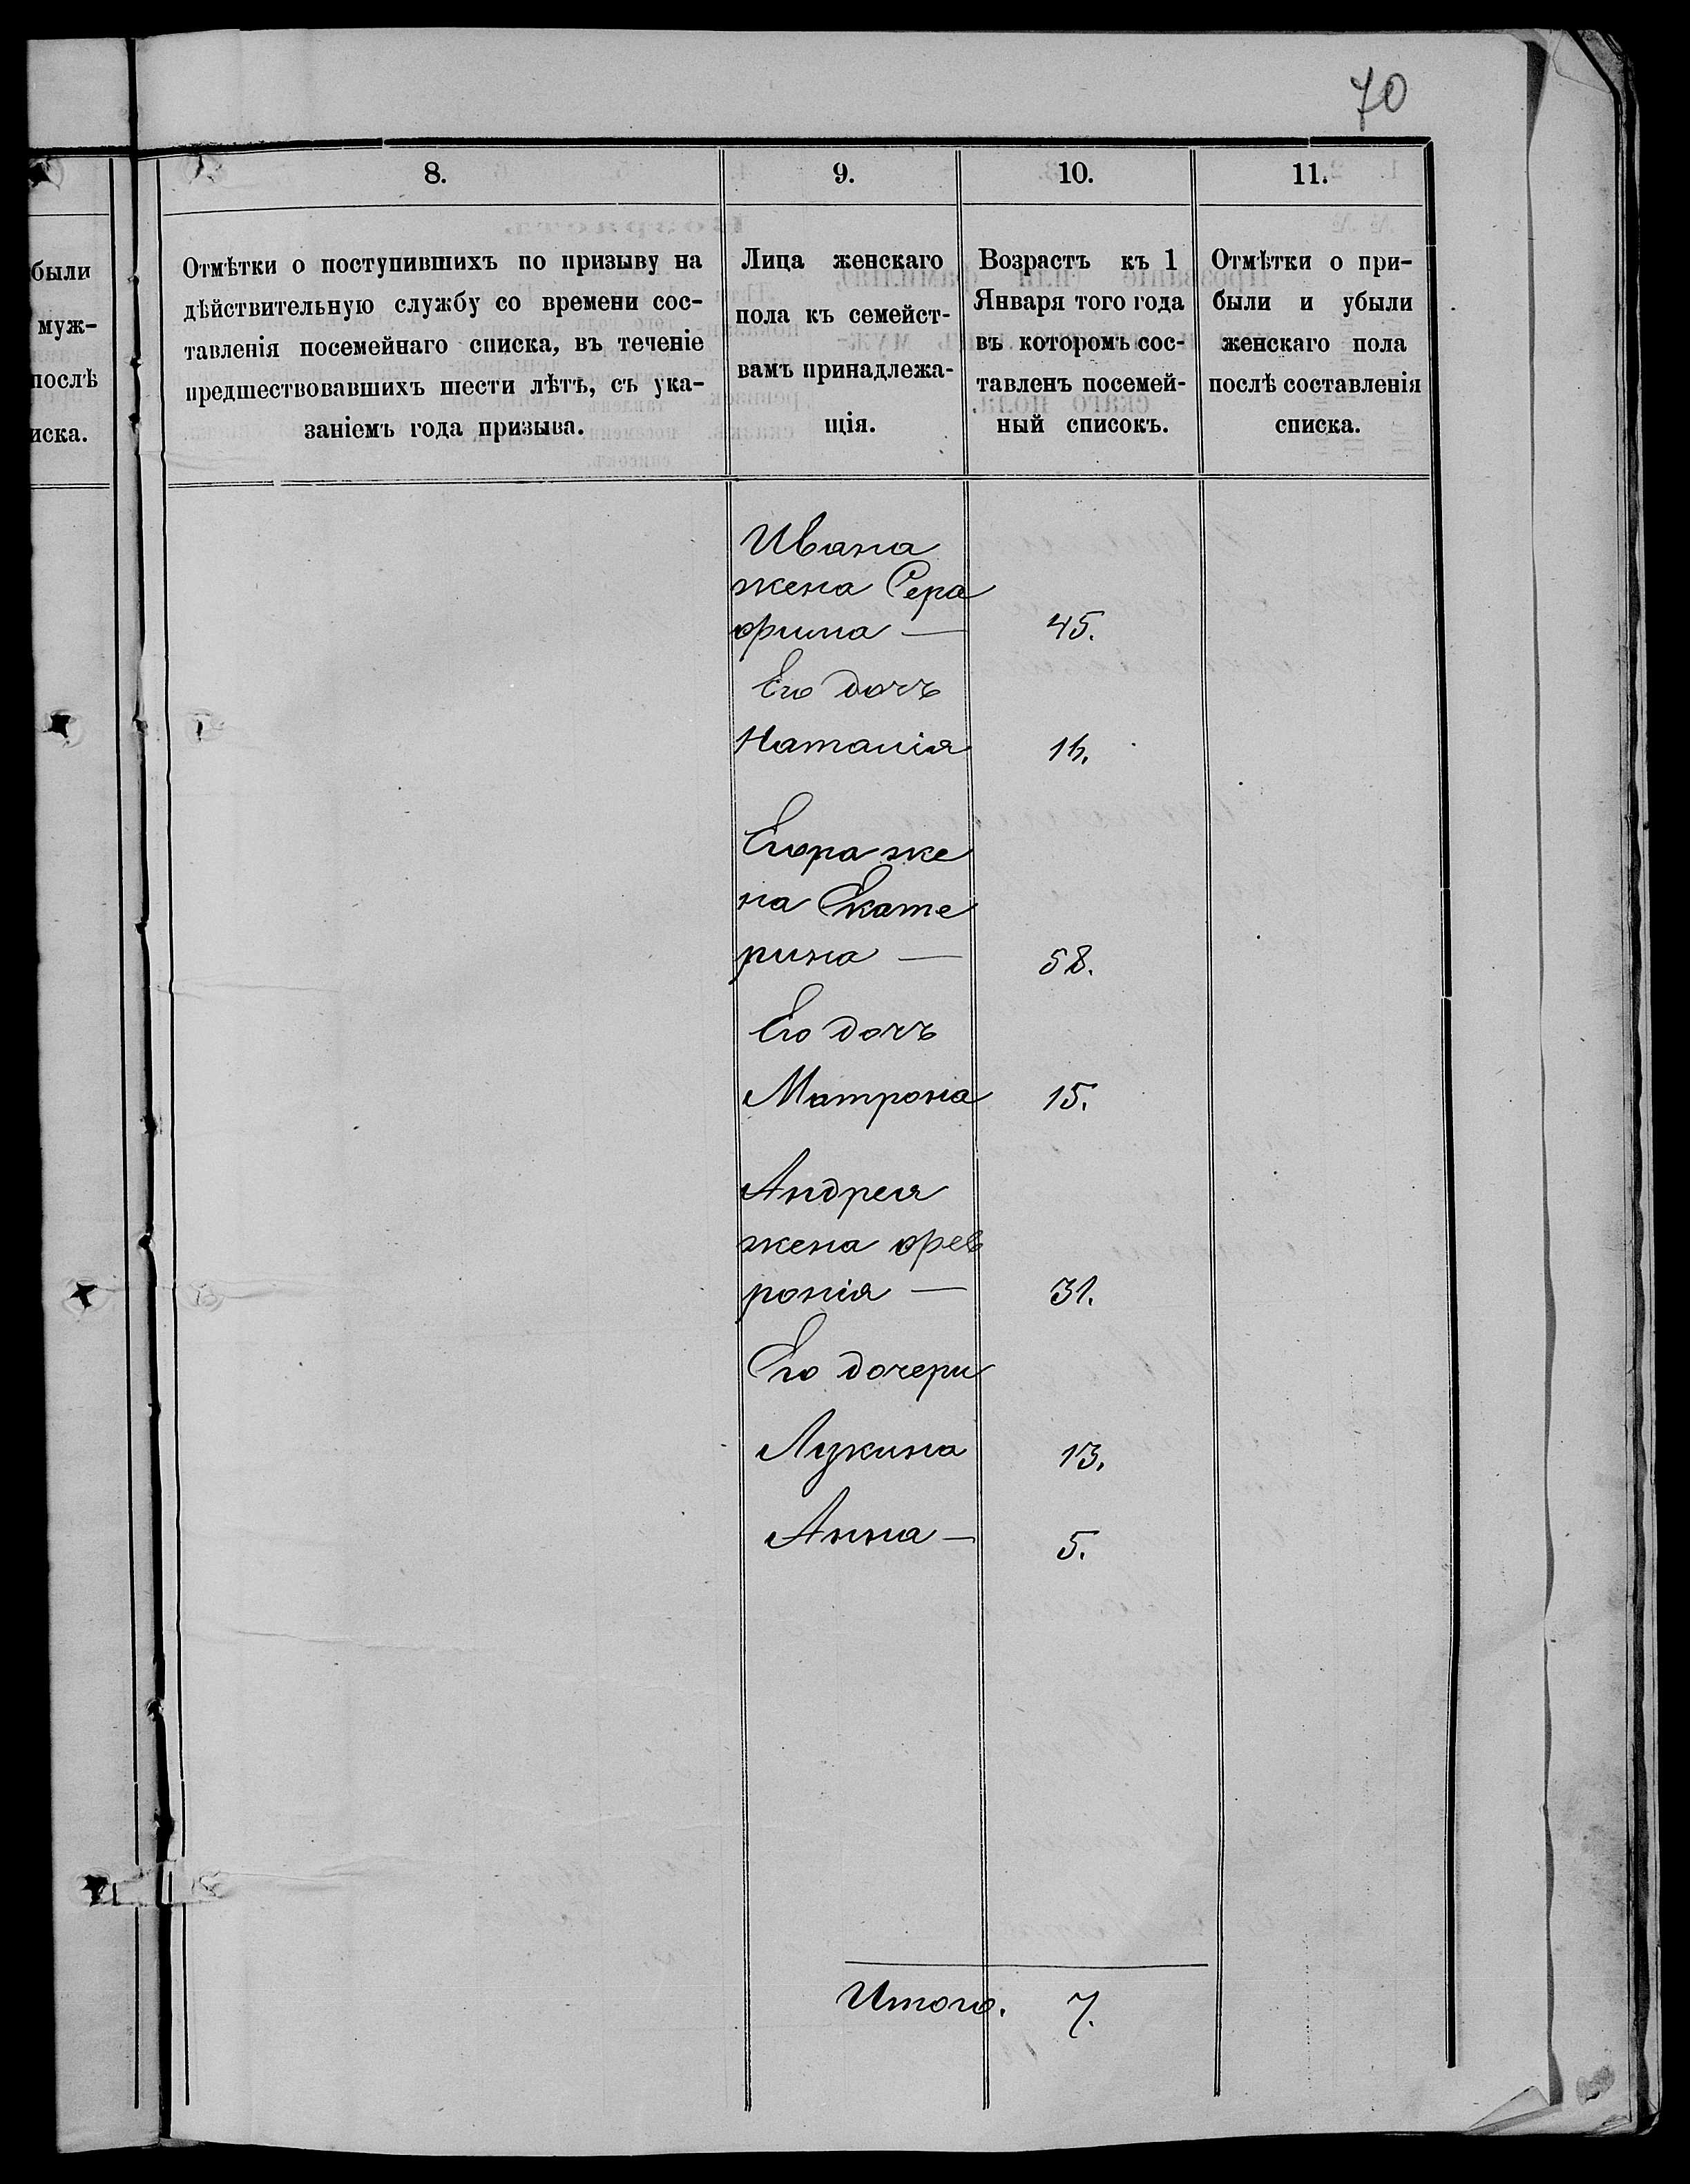 70
8.
9.
10.
11.
были
муж-
послѣ
иска.
Отмѣтки о поступившихъ по призыву на
дѣйствительную службу со времени сос-
тавленія посемейнаго списка, въ теченіе
предшествовавшихъ шести лѣтъ, съ ука-
заніемъ года призыва.
Лица женскаго
пола къ семейст-
вамъ принадлежа-
щія.
Возрастъ къ 1
Января того года
въ которомъ сос-
тавленъ посемей-
ный списокъ.
Отмѣтки о при-
были и убыли
женскаго пола
послѣ составленія
списка.
Ивана
жена Сера
фима — 45.
Его дочъ
Наталія 16.
Егора же
на Екате
рина — 58.
Его дочъ
Матрона 15.
Андрея
жена фев
ронія — 31.
Его дочери
Лукина 13.
Анна — 5.
Итого. 7.